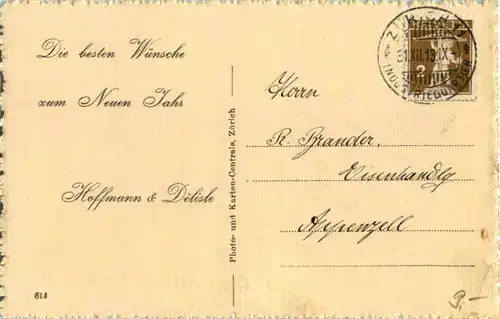 Die besten Wünsche
zum Neuen Jahr
Hoffmann & Délisle
614
Photo- und Karten-Centrale, Zürich
ZÜRICH
31.XII.13.IX
INDUSTRIEQUARTIER
2
Herrn
R. Brander,
Eisenhandlg
Appenzell
9.-